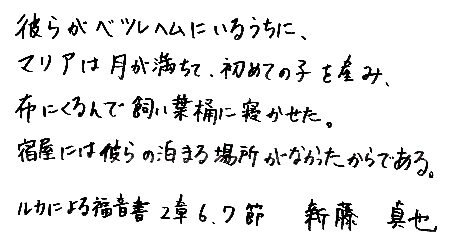 彼らがベツレヘムにいるうちに、
マリアは月が満ちて、初めての子を産み、
布にくるんで飼い葉桶に寝かせた。
宿屋には彼らの泊まる場所がなかったからである。
ルカによる福音書 2章 6、7節 新藤 真也